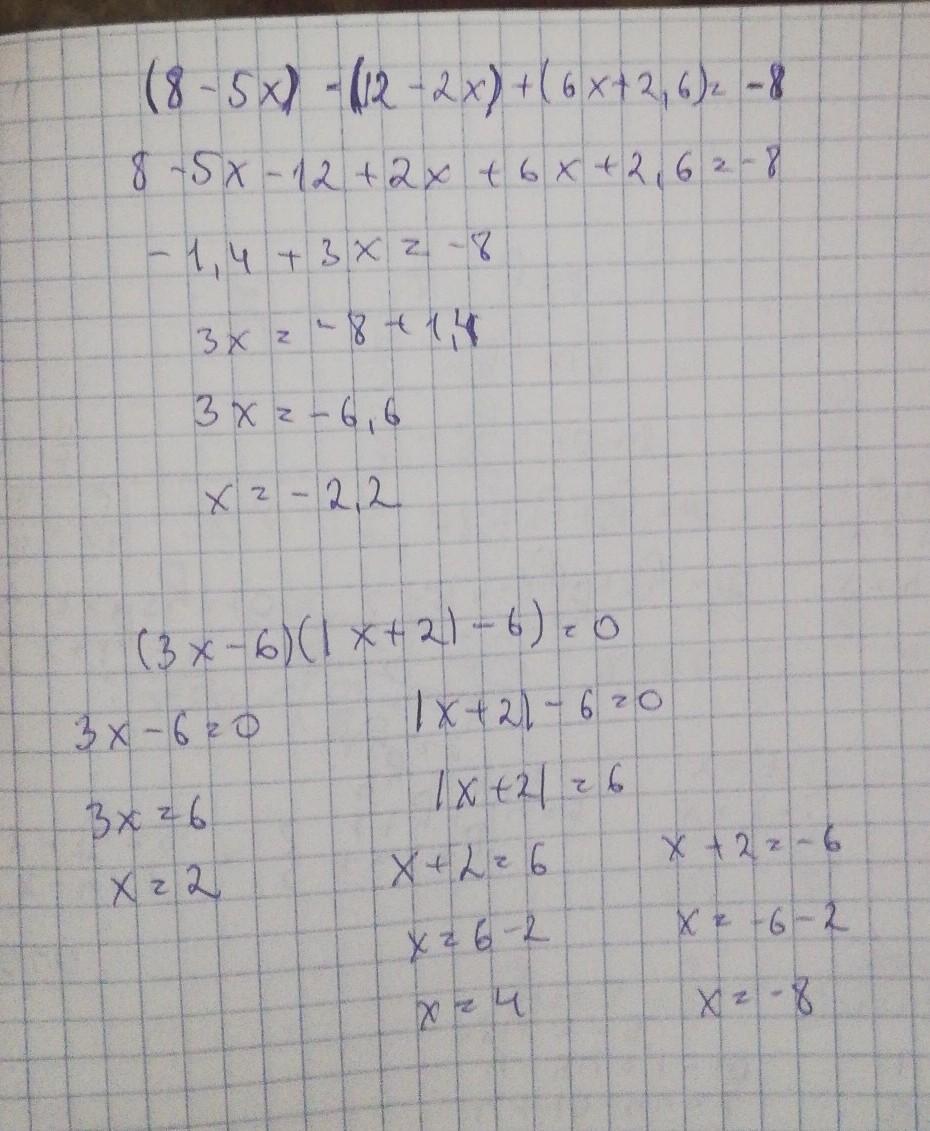 (8 - 5x) - (12 - 2x) + (6x + 2,6) = -8
8 - 5x - 12 + 2x + 6x + 2,6 = -8
-1,4 + 3x = -8
3x = -8 + 1,4
3x = -6,6
x = -2,2
(3x - 6)(|x + 2| - 6) = 0
3x - 6 = 0 |x + 2| - 6 = 0
3x = 6 |x + 2| = 6
x = 2 x + 2 = 6 x + 2 = -6
x = 6 - 2 x = -6 - 2
x = 4 x = -8